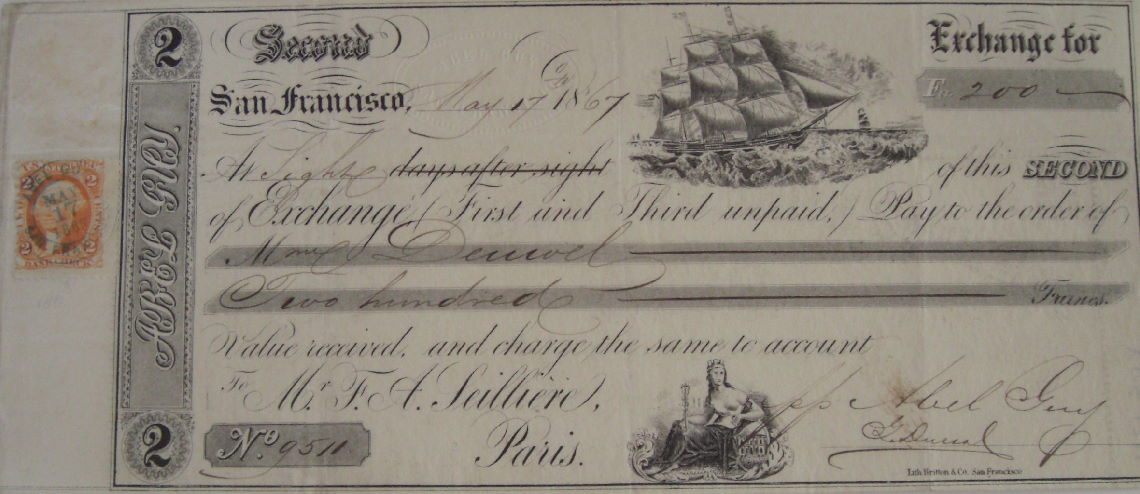 2
Second
Exchange for
San Francisco, May 17 1867
Fr. 200
At Sight days after sight of this SECOND
of Exchange (First and Third unpaid,) Pay to the order of
Mme
Two hundred Francs.
Value received, and charge the same to account
To Mr. F. A. Seillière,
Paris.
No 9511
2
pp Abel Guy
Lith Britton & Co. San Francisco
ABEL GUY
2 2
MAY
17
2 2
BANK CHECK